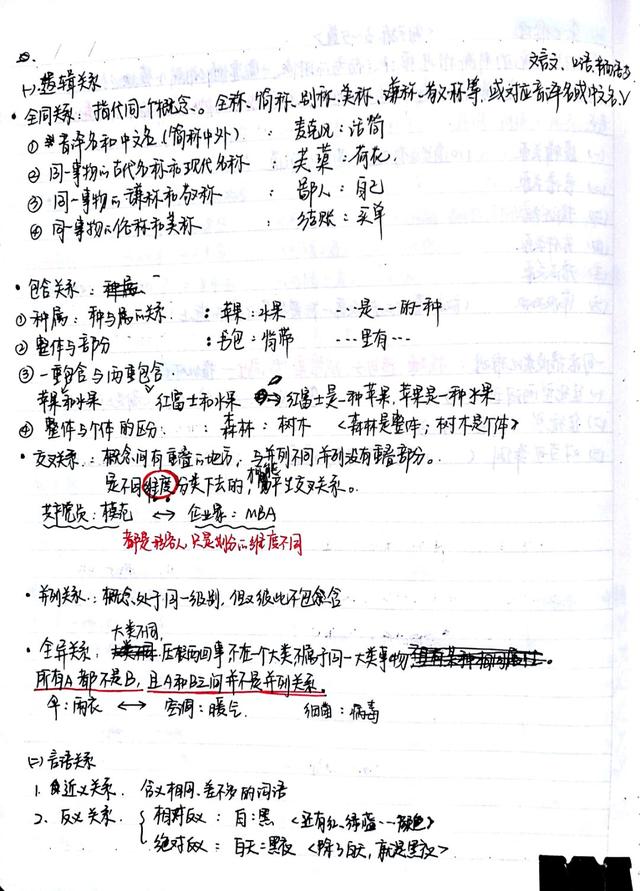 (一) 逻辑关系
文言文、口语、书面语
• 全同关系：指代同一个概念。全称、简称、别称、美称、谦称、敬称等，或对应音译名或中文名
① 音译名和中文名(简称中外)：麦克风：话筒
② 同一事物的古代名称和现代名称 芙蕖：荷花
③ 同一事物的谦称和敬称 鄙人：自己
④ 同一事物的俗称和美称 结账：买单
• 包含关系：种属
① 种属：种与属的关系 ：苹果：水果 …是…的一种
② 整体与部分 ：书包：背带 …里有…
③ 一重包含与两重包含
苹果和水果 红富士和水果 红富士是一种苹果，苹果是一种水果
④ 整体与个体的区分： 森林：树木 <森林是整体；树木是个体>
• 交叉关系：概念间有重叠的地方，与并列不同并列没有重叠部分。
是不同维度分类下去的，才能产生交叉关系。
共产党员：模范 ↔ 企业家：MBA
都是 只是划分的维度不同
• 并列关系：概念处于同一级别，但又彼此不包含
大类不同，
• 全异关系： 压根两回事不在一个大类不属于同一大类事物
所有A都不是B，且A和B之间并不是并列关系。
伞：雨衣 ↔ 空调：暖气 细菌：病毒
(二) 言语关系
1. 近义关系. 含义相同、差不多的词语
2. 反义关系. 相对反义：白：黑 <还有红、绿、蓝…颜色>
绝对反义：白天：黑夜 <除了白天，就是黑夜>